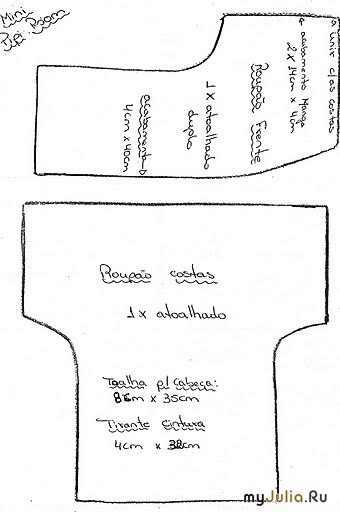 Mini
Pipi Room
unir c/as costas
acabamento Manga
2 x 14cm x 4cm
Roupão Frente
1 x atoalhado
duplo
acabamento
4cm x 40cm
Roupão costas
1 x atoalhado
Toalha p/ Cabeça:
cm x 35cm
Tirante Cintura
4cm x cm
myJulia.Ru